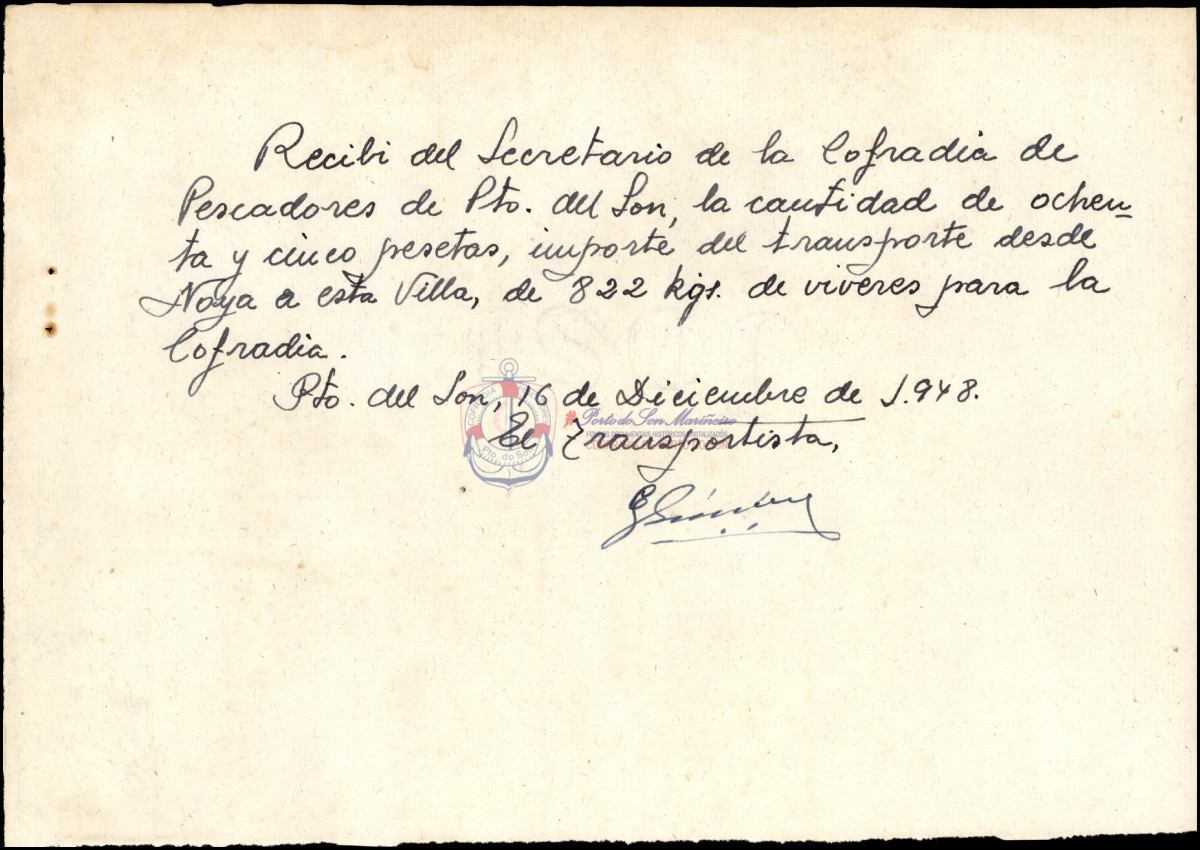 Recibi del Secretario de la Cofradia de
Pescadores de Pto. del Son, la cantidad de ochen-
ta y cinco pesetas, importe del transporte desde
Noya a esta Villa, de 822 kgs. de viveres para la
Cofradia.
Pto. del Son, 16 de Diciembre de 1.948.
El Transportista,
Porto do Son Mariñeiro
Pto. do Son